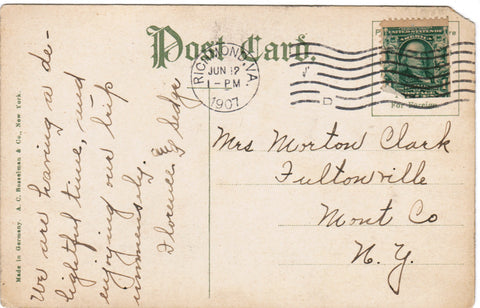 Post Card.
RICHMOND, VA.
JUN 12
1-PM
1907
D
For Foreign
We are having a de-
lightful time, and
enjoying our trip
immensely.
Florence
Mrs Morton Clark
Fultonville
Mont Co
N. Y.
Made in Germany. A. C. Bosselman & Co., New York.